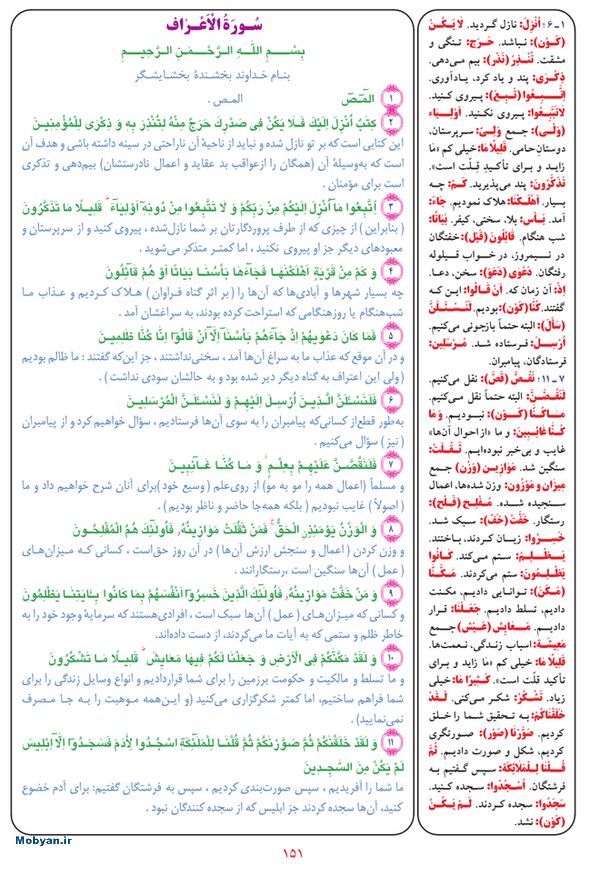 سُورَةُ الْأَعْرَاف
بِسْـمِ اللّـهِ الرَّحْـمٰنِ الرَّحِيـمِ
بنـام خداوند بخشندهٔ بخشایشگر
۱ الٓمٓصٓ المـص .
۲ كِتٰبٌ أُنْزِلَ إِلَيْكَ فَـلَا يَكُنْ فِی صَدْرِكَ حَرَجٌ مِنْهُ لِتُنْذِرَ بِهِ وَ ذِكْرٰی لِلْمُؤْمِنِينَ
این کتابی است که بر تو نازل شده و نباید از ناحیهٔ آن ناراحتی در سینه داشته باشی و هدف آن
است که به‌وسیلهٔ آن (همگان را ازعواقب بد عقاید و اعمال نادرستشان) بیم‌دهی و تذکری
است برای مؤمنان .
۳ اِتَّبِعُوا مَآ أُنْزِلَ إِلَيْكُمْ مِنْ رَبِّكُمْ وَ لَا تَتَّبِعُوا مِنْ دُونِهِٓ أَوْلِيَآءَ ۗ قَلِيـلًا مَا تَذَكَّرُونَ
( بنابراین ) از چیزی که از طرف پروردگارتان بر شما نازل‌شده ، پیروی کنید و از سرپرستان و
معبودهای دیگر جز او پیروی نکنید ، اما کمتـر متذکر می‌شوید .
۴ وَ كَمْ مِنْ قَرْيَةٍ أَهْلَكْنٰهَا فَجَآءَهَا بَأْسُنَا بَيَاتًا أَوْ هُمْ قَآئِلُونَ
چه بسیار شهرها و آبادی‌ها که آن‌ها را ( بر اثر گناه فراوان ) هـلاک کـردیـم و عذاب مـا
شب‌هنگام یا روزهنگامی که استراحت کرده بودند، به سراغشان آمد .
۵ فَمَا كَانَ دَعْوٰيهُمْ إِذْ جَآءَهُمْ بَأْسُنَآ إِلَّآ أَنْ قَالُوٓا إِنَّا كُنَّا ظٰلِمِينَ
و در آن موقع که عذاب ما به سراغ آن‌ها آمد ، سخنی‌نداشتند ، جز این‌که گفتند : ما ظالم بودیم
( ولی این اعتراف به گناه دیگر دیر شده بود و به حالشان سودی نداشت ) .
۶ فَلَنَسْئَلَنَّ الَّـذِيـنَ أُرْسِـلَ إِلَيْهِـمْ وَ لَنَسْئَلَنَّ الْمُرْسَلِيـنَ
به‌طور قطع‌از کسانی‌که پیامبران را به سوی آن‌ها فرستادیم ، سؤال خواهیم کرد و از پیامبران
( نیز ) سؤال می‌کنیم .
۷ فَلَنَقُصَّـنَّ عَلَيْهِـمْ بِعِلْـمٍ ۖ وَ مَـا كُنَّـا غَـآئِبِيـنَ
و مسلماً (اعمال همه را مو به مو) از روی‌علم ( وسیع خود )برای آنان شرح خواهیم داد و ما
( اصولاً ) غایب نبودیم ( بلکه همه‌جا حاضر و ناظر بودیم ) .
۸ وَ الْوَزْنُ يَوْمَئِذٍ الْحَقُّ ۚ فَمَنْ ثَقُلَتْ مَوَازِينُهُ فَأُولٰٓئِكَ هُمُ الْمُفْلِحُونَ
و وزن کردن ( اعمال و سنجش ارزش آن‌ها ) در آن روز حق‌است ، کسانی کـه میـزان‌هـای
( عمل ) آن‌ها سنگین است ،رستگارانند .
۹ وَ مَنْ خَفَّتْ مَوَازِينُهُ فَأُولٰٓئِكَ الَّذِينَ خَسِرُوٓا أَنْفُسَهُمْ بِمَا كَانُوا بِـٰٔايٰتِنَا يَظْلِمُونَ
و کسانی که میزان‌های ( عمل ) آن‌ها سبک است ، افرادی‌هستند که سرمایهٔ وجود خود را به
خاطر ظلم و ستمی که به آیات ما می‌کردند، از دست داده‌اند.
۱۰ وَ لَقَدْ مَكَّنّٰكُمْ فِی الْأَرْضِ وَ جَعَلْنَا لَكُمْ فِيهَا مَعَايِشَ ۗ قَلِيـلًا مَـا تَشْكُرُونَ
و ما تسلط و مالکیت و حکومت برزمین را برای شما قراردادیم و انواع وسایل زندگی را برای
شما فراهم ساختیم، اما کمتر شکرگزاری می‌کنید (و این‌همه موهبت را بـه جـا مـصرف
نمی‌نمایید) .
۱۱ وَ لَقَدْ خَلَقْنٰكُمْ ثُمَّ صَوَّرْنٰكُمْ ثُمَّ قُلْنَا لِلْمَلٰٓئِكَةِ اسْجُدُوا لِأٰدَمَ فَسَجَدُوٓا إِلَّآ إِبْلِيسَ
لَمْ يَكُنْ مِنَ السّٰجِـدِينَ
ما شما را آفریدیم ، سپس صورت‌بندی کردیم ، سپس به فرشتگان گفتیم: برای آدم خضوع
کنید، آن‌ها سجده کردند جز ابلیس که از سجده کنندگان نبود .
۱ـ۶: أُنْزِلَ: نازل گردید. لَا يَكُنْ
(كَوْن): نباشد. حَرَج: تنگی و
مشقت. تُنْذِرَ (نُذْر): بیم می‌دهی.
ذِكْرٰی: پند و یاد کرد، یادآوری.
إِتَّبِعُوا (تَبِعَ): پیروی کنید.
لَاتَتَّبِعُوا: پیروی نکنید. أَوْلِيَـاء
(وَلْی): جمع وَلِیّ: سرپرستان،
دوستان‌حامی. قَلِيلًا مَا: خیلی کم «مَا
زاید و برای تأکید قِـلّت است».
تَذَكَّرُونَ: پند می‌پذیرید. كَمْ: چه
بسیار. أَهْلَكْنَا: هلاک نمودیم. جَاءَ:
آمد. بَـأْس: بلا، سختی، کیفر. بَيَاتًا:
شب هنگام. قَائِلُونَ (قَيْل): خفتگان
در نیـمروز، در خواب قیـلوله
رفتگان. دَعْوٰی (دَعَوَ): سخن، دعـا.
إِذْ: آن زمان که. أَنْ قَالُوا: این کـه
گفتند. كُنَّا (كَوْن): بودیم. لَنَسْئَلَنَّ
(سَأَلَ): البته حتمـاً بازجوئی می‌کنیم.
أُرْسِـلَ: فرستاده شـد. مُرْسَلِينَ:
فرستادگان، پیامبران.
۷ـ۱۱: نَقُصُّ (قَصَّ): نقل می‌کنیم.
لَنَقُصَّنَّ: البته حتماً نقل می‌کنیم.
مَـاكُنَّـا (كَـوْن): نبـودیـم. وَ مَا
كُنَّا غَائِبِينَ: و «ما از احوال آن‌ها»
غایب و بی‌خبر نبوده‌ایم. ثَـقُلَتْ:
سنگین شد. مَوَازِين (وَزْن) جمع
مِيزان وَ مَوْزُون: وزن شده‌ها، اعمال
سنجیده شـده. مُفْلِـح (فَلَحَ):
رستگار. خَفَّتْ (خَفَّ): سبک شد.
خَسِرُوا: زیـان کـردنـد، بـاختند.
يَـظْلِـمُ: ستم می‌کند. كَـانُوا
يَظْلِمُونَ: ستم می‌کردند. مَـكَّنَّـا
(مَكَنَ): توانایی دادیم، مکـنت
دادیم، تسلط دادیم. جَعَلْنَا: قـرار
دادیم. مَـعَايِش (عَيْش) جـمع
مَعِيشَة: اسباب زندگی، نـعمت‌ها.
قَلِيلًا مَا: خیلی کم «مَا زاید و برای
تأکید قلّت است». كَـثِيرًا مَـا: خیلی
زیاد. تَشْكُرُ: شکـر می‌کنی. لَـقَدْ
خَلَقْنَاكُمْ: بـه تحقیق شمـا را خـلق
کردیم. صَوَّرْنَا (صَوَّرَ): صورتگری
کردیم، شکل و صورت دادیم. ثُمَّ
قُـلْنَا لِلْمَلَائِكَةِ: سپس گفتیم بـه
فرشتگان. أُسْجُدُوا: سجده کـنید.
سَجَدُوا: سجده کردند. لَمْ يَكُـنْ
(كَوْن): نشد.
۱۵۱
Mobyan.ir